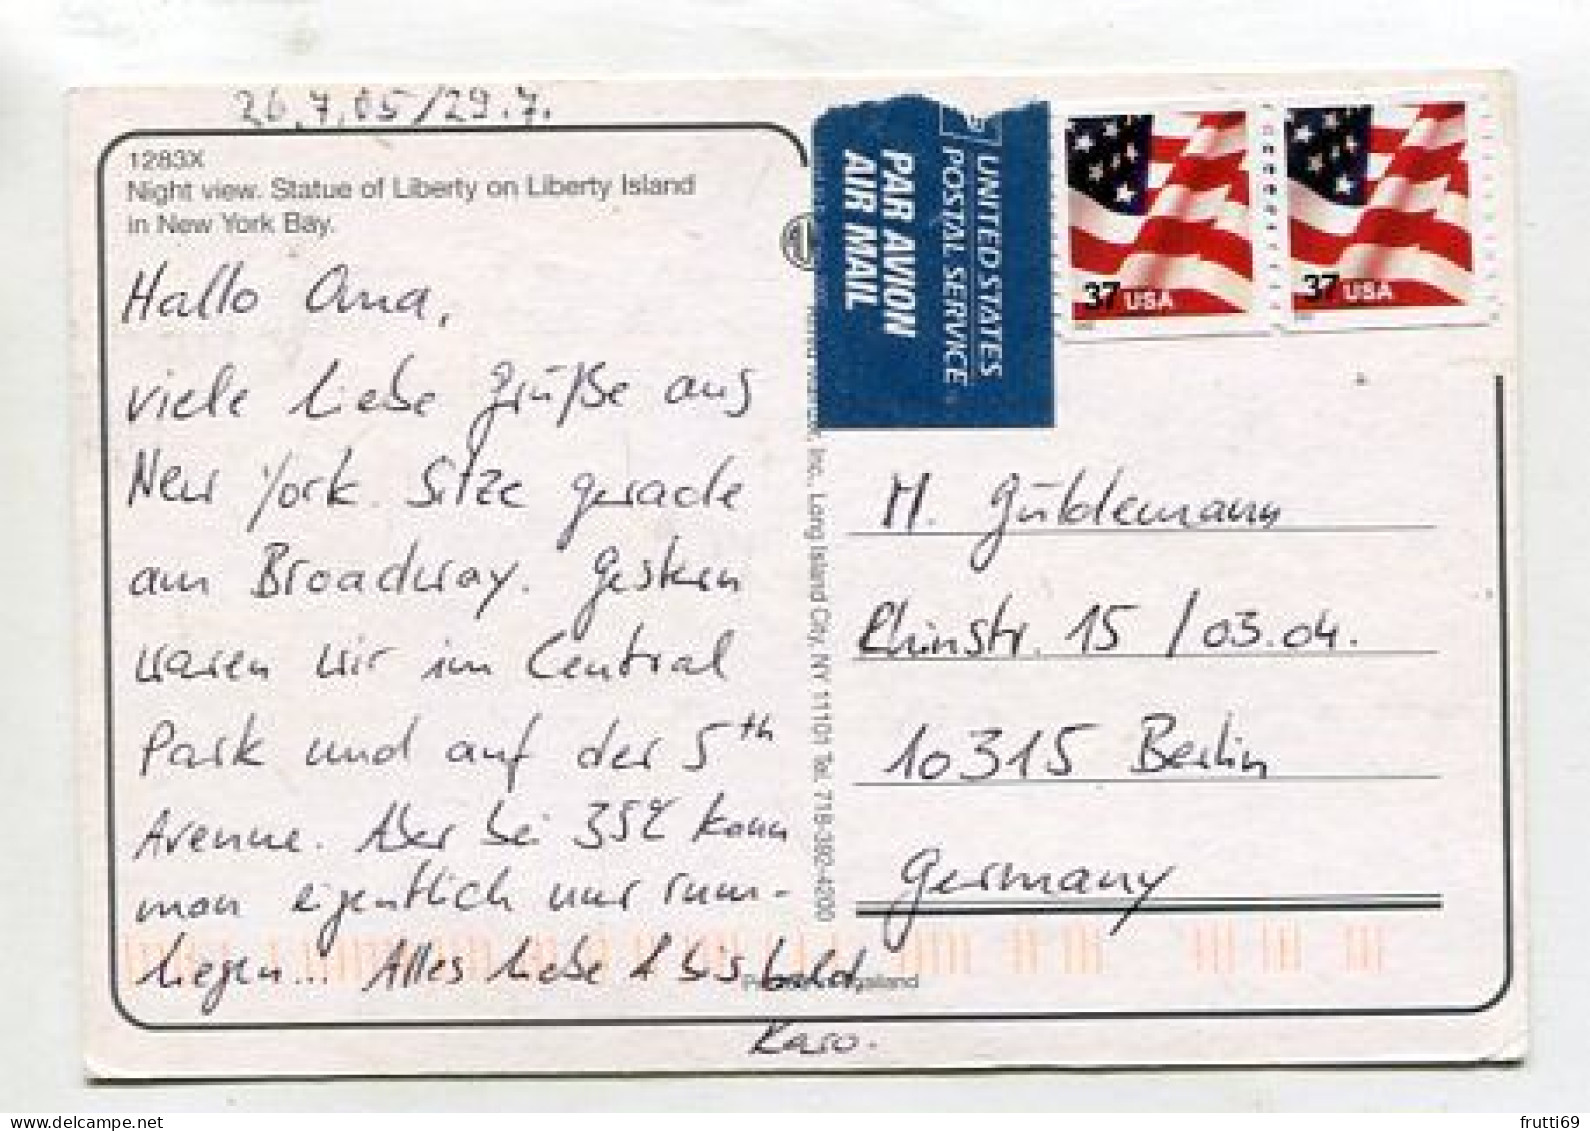 26.7.05/29.7.
1283X
Night view. Statue of Liberty on Liberty Island
in New York Bay.
Hallo Oma,
viele liebe Grüße aus
New York. Sitze gerade
am Broadway. Gestern
waren wir im Central
Park und auf der 5th
Avenue. Aber bei 35° kann
man eigentlich nur rum-
liegen... Alles Liebe & bis bald,
Karo.
PAR AVION
AIR MAIL
UNITED STATES
POSTAL SERVICE
37 USA
37 USA
Inc., Long Island City, NY 11101 Tel. 718-392-4200
M. Güldemann
Rhinstr. 15 / 03.04.
10315 Berlin
Germany
frutti69